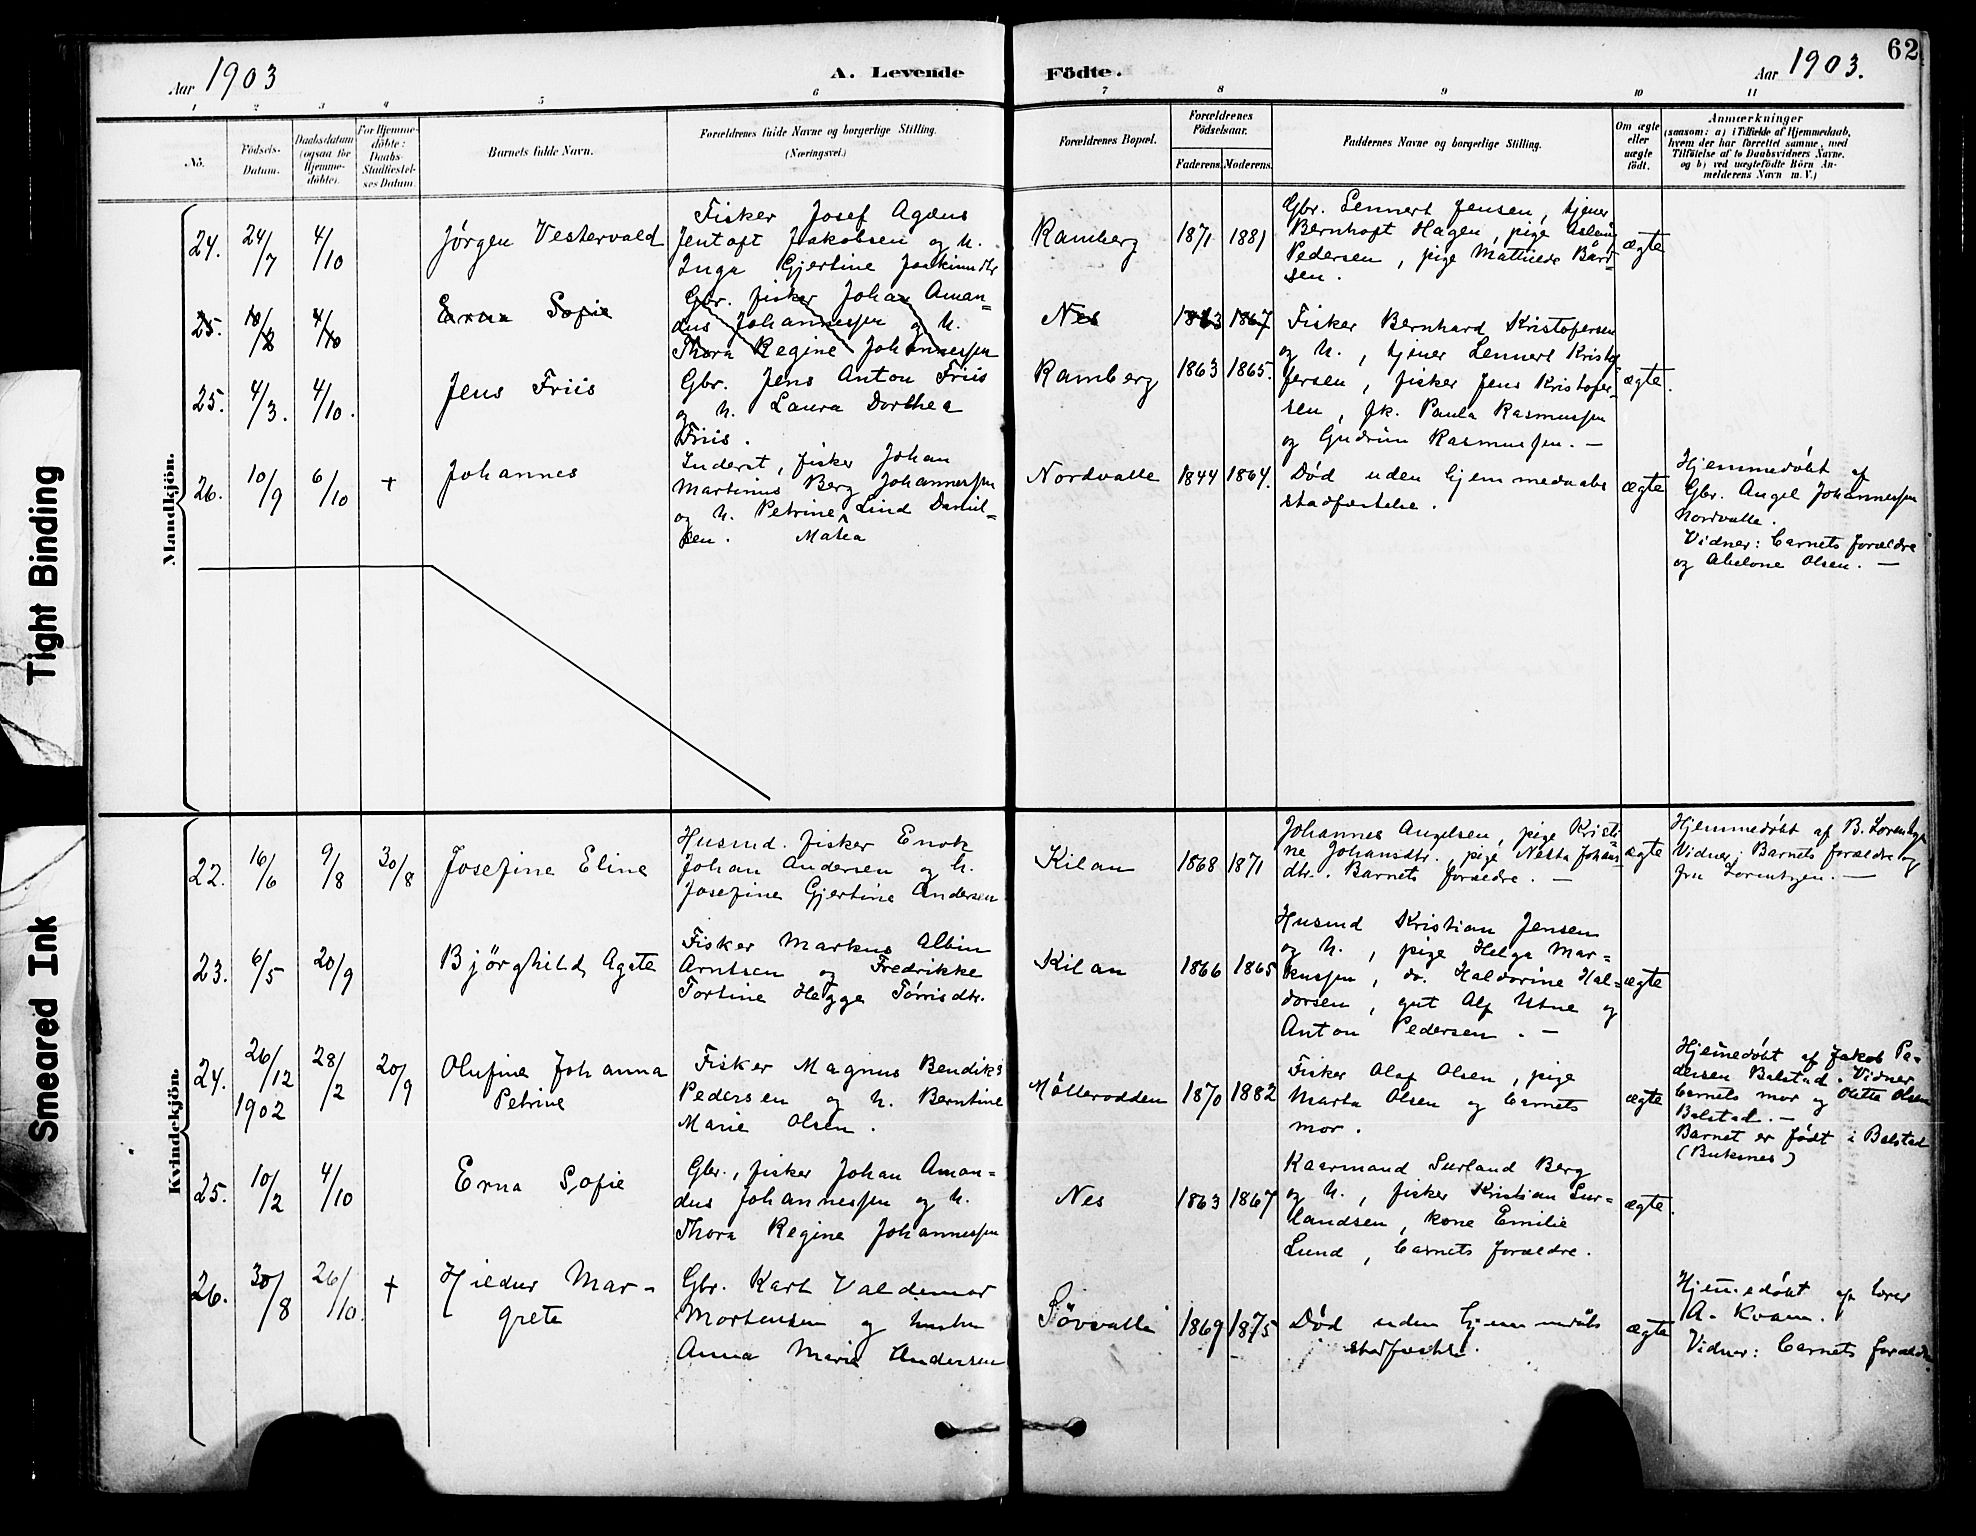 62
Aar 1903
A. Levende
Födte.
Aar 1903.
1 2 3 4 5 6 7 8 9 10 11
No.
Födsels-
Datum.
Daabsdatum
(ogsaa for
Hjemme-
döbte).
For Hjemme-
döbte:
Daabs-
Stadfæstel-
ses Datum.
Barnets fulde Navn.
Forældrenes fulde Navne og borgerlige Stilling.
(Næringsvei.)
Forældrenes Bopæl.
Forældrenes
Födselsaar.
Faderens. Moderens.
Faddernes Navne og borgerlige Stilling.
Om ægte
eller
uægte
födt.
Anmærkninger
(saasom: a) i Tilfælde af Hjemmedaab,
hvem der har forrettet samme, med
Tilföielse af to Daabsvidners Navne,
og b) ved uægtefödte Börn An-
melderens Navn m. V.)
Mandkjön.
24. 24/7 4/10
Jørgen Vestervald
Fisker Josef Agæus
Jentoft Jakobsen og h.
Inga Gjertine Joakimsdtr
Ramberg
1871 1881
Gbr. Lennert Jensen, tjener
Bernhoft Hagen, pige
Pedersen, pige Mathilde Bård-
sen.
ægte
25. 10/2 4/10
Erna Sofie
Gbr. fisker Johan Aman-
dus Johannessen og h.
Thora Regine Johannessen
Nes
1863 1867
25. 4/3. 4/10.
Jens Friis
Gbr. Jens Anton Friis
og h. Laura Dorthea
Friis.
Ramberg
1863 1865.
Fisker Bernhard Kristofersen
og h., tjener Lennert Kristof-
fersen, fisker Jens Kristofer-
sen, fk. Paula Rasmussen
og Gudrun Rasmussen. —
ægte.
26. 10/9 6/10 +
Johannes
Inderst, fisker Johan
Martinus Berg Johannessen
og h. Petrine Lind Daniel-
sen. Matea
Nordvalle
1844 1864.
Død uden hjemmedaabs
stadfæstelse.
ægte
Hjemmedøbt af
Gbr. Angel Johannessen
Nordvalle.
Vidner: barnets forældre
og Abelone Olsen. —
Kvindekjön.
22. 16/6 9/8 30/8
Josefine Eline
Husmd. fisker Enok
Johan Andersen og h.
Josefine Gjertine Andersen
Kilan
1868 1871
Johannes Angelsen, pige Kristi-
ne Johansdtr., pige Netta Johans-
dtr. Barnets forældre. —
ægte
Hjemmedøbt af B. Lorentzen
Vidner: Barnets forældre og
fru Lorentzen. —
23. 6/5 20/9
Bjørghild Agate
Fisker Markus Albin
Arntsen og Fredrikke
Tortine Hegge Tørrisdtr.
Kilan
1866 1865
Husmd Kristian Jensen
og h., pige Helga Mar-
kussen, do. Haldorine Hal-
dorsen, gut Alf Utne og
Anton Pedersen. —
ægte
24. 26/12 1902 28/2 20/9
Olufine Johanna
Petrine
Fisker Magnus Bendiks
Pedersen og h. Berntine
Marie Olsen.
Møllerodden
1870 1882
Fisker Olaf Olsen, pige
Marta Olsen og barnets
mor.
ægte
Hjemmedøbt af Jakob Pe-
dersen Balstad. Vidner
barnets mor og Olette Olsen
Balstad. —
Barnet er født i Balstad
(Buksnes)
25. 10/2 4/10
Erna Sofie
Gbr., fisker Johan Aman-
dus Johannessen og h.
Thora Regine Johannessen
Nes
1863 1867
Kaarmand Surland Berg
og h., fisker Kristian Sur-
landsen, kone Emilie
Lund, barnets forældre.
ægte.
26. 30/8 26/10. +
Hildur Mar-
grete
Gbr. Karl Valdemar
Mortensen og hustru
Anna Marie Andersen
Sövvalle
1869 1875
Død uden hjemmedåbs
stadfæstelse.
ægte
Hjemmedøbt af lærer
A. Kvam.
Vidner: barnets forældre.
Tight Binding
Smeared Ink